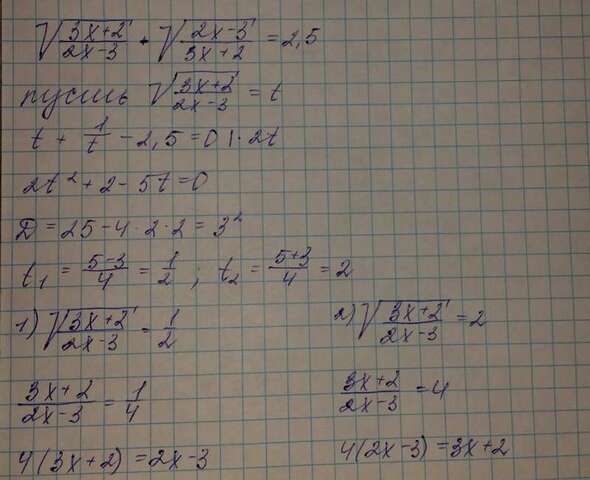 √(3x+2)/(2x-3) + √(2x-3)/(3x+2) = 2,5
пусть √(3x+2)/(2x-3) = t
t + 1/t - 2,5 = 0 |·2t
2t² + 2 - 5t = 0
D = 25 - 4·2·2 = 3²
t₁ = (5-3)/4 = 1/2 ; t₂ = (5+3)/4 = 2
1) √(3x+2)/(2x-3) = 1/2
(3x+2)/(2x-3) = 1/4
4(3x+2) = 2x-3
2) √(3x+2)/(2x-3) = 2
(3x+2)/(2x-3) = 4
4(2x-3) = 3x+2